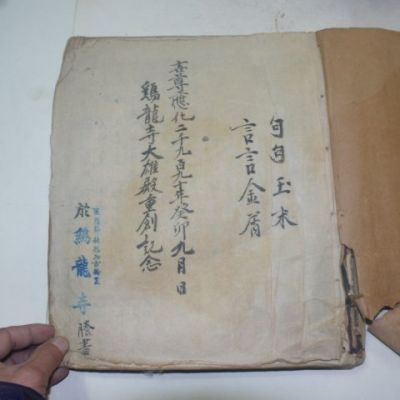 句句玉末
言言金屑
世尊應化二千九百九年癸卯九月日
鷄龍寺大雄殿重創記念
於鷄龍寺謄書